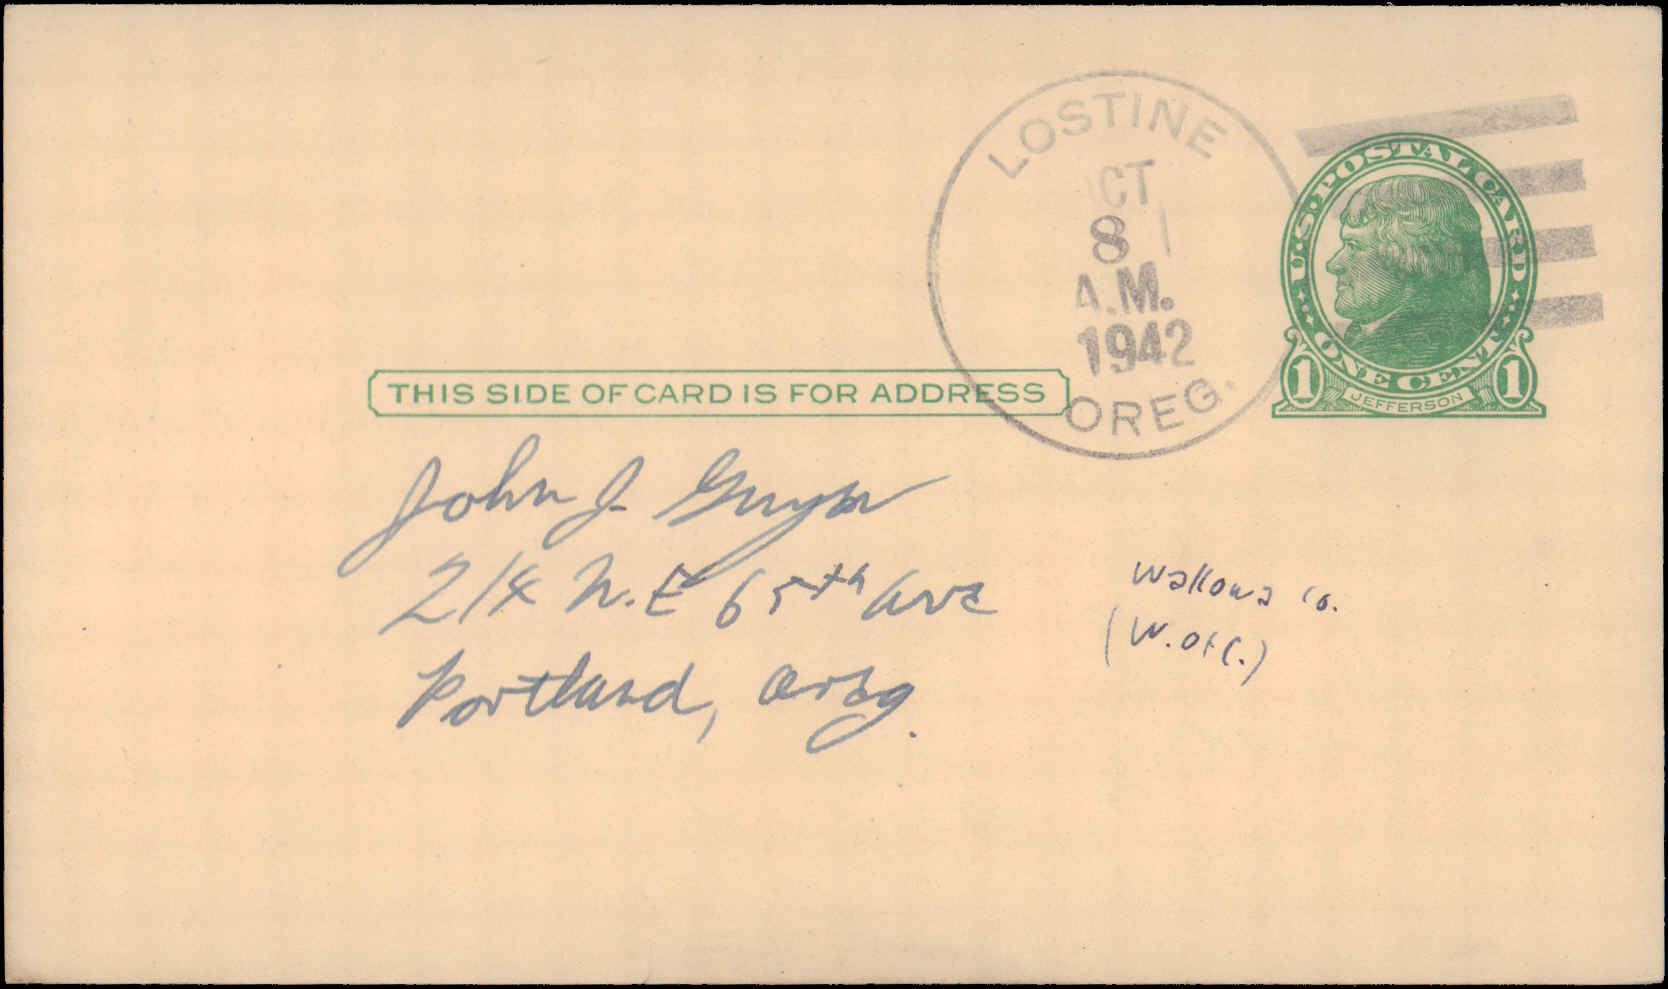 LOSTINE
OCT
8
A.M.
1942
OREG.
U.S. POSTAL CARD
ONE CENT
1 JEFFERSON 1
THIS SIDE OF CARD IS FOR ADDRESS
John J.
214 N.E 65th Ave
Portland, Oreg.
Wallowa Co.
(W. of C.)